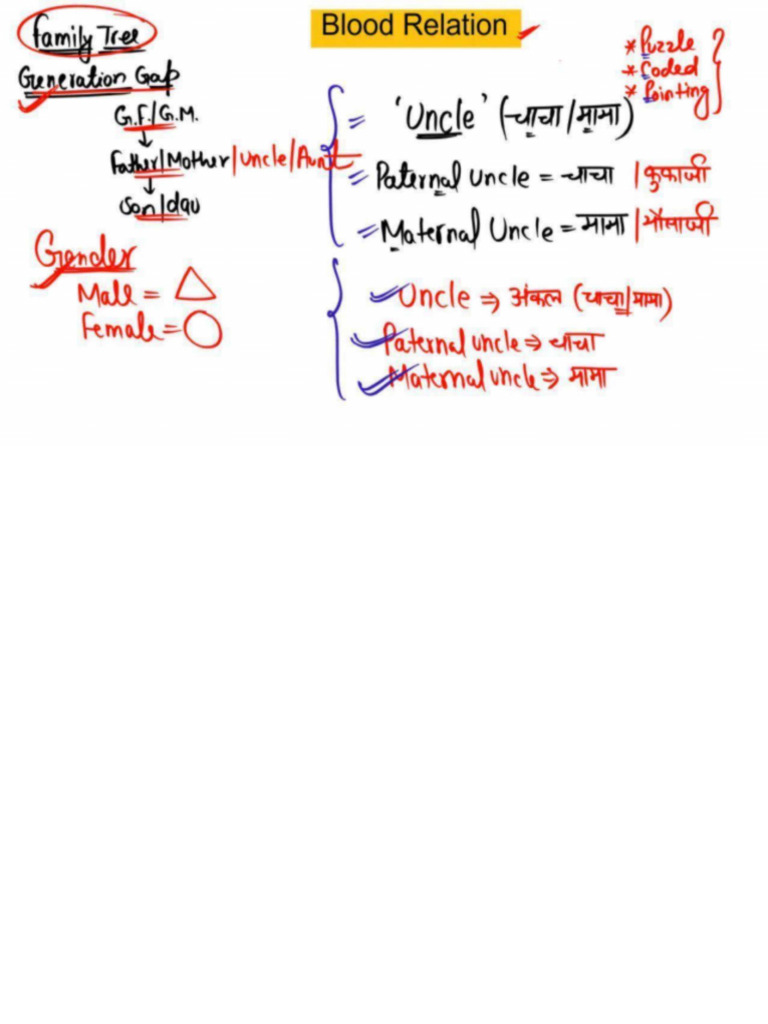 Family Tree
Blood Relation
* Puzzle
* Coded
* Pointing
Generation Gap
G.F./G.M.
Father/Mother/Uncle/Aunt
Son/dau
= 'Uncle' (चाचा/मामा)
= Paternal Uncle = चाचा / फुफाजी
= Maternal Uncle = मामा / मौसाजी
Gender
Male = △
Female = ○
Uncle ⇒ अंकल (चाचा/मामा)
Paternal uncle ⇒ चाचा
Maternal uncle ⇒ मामा